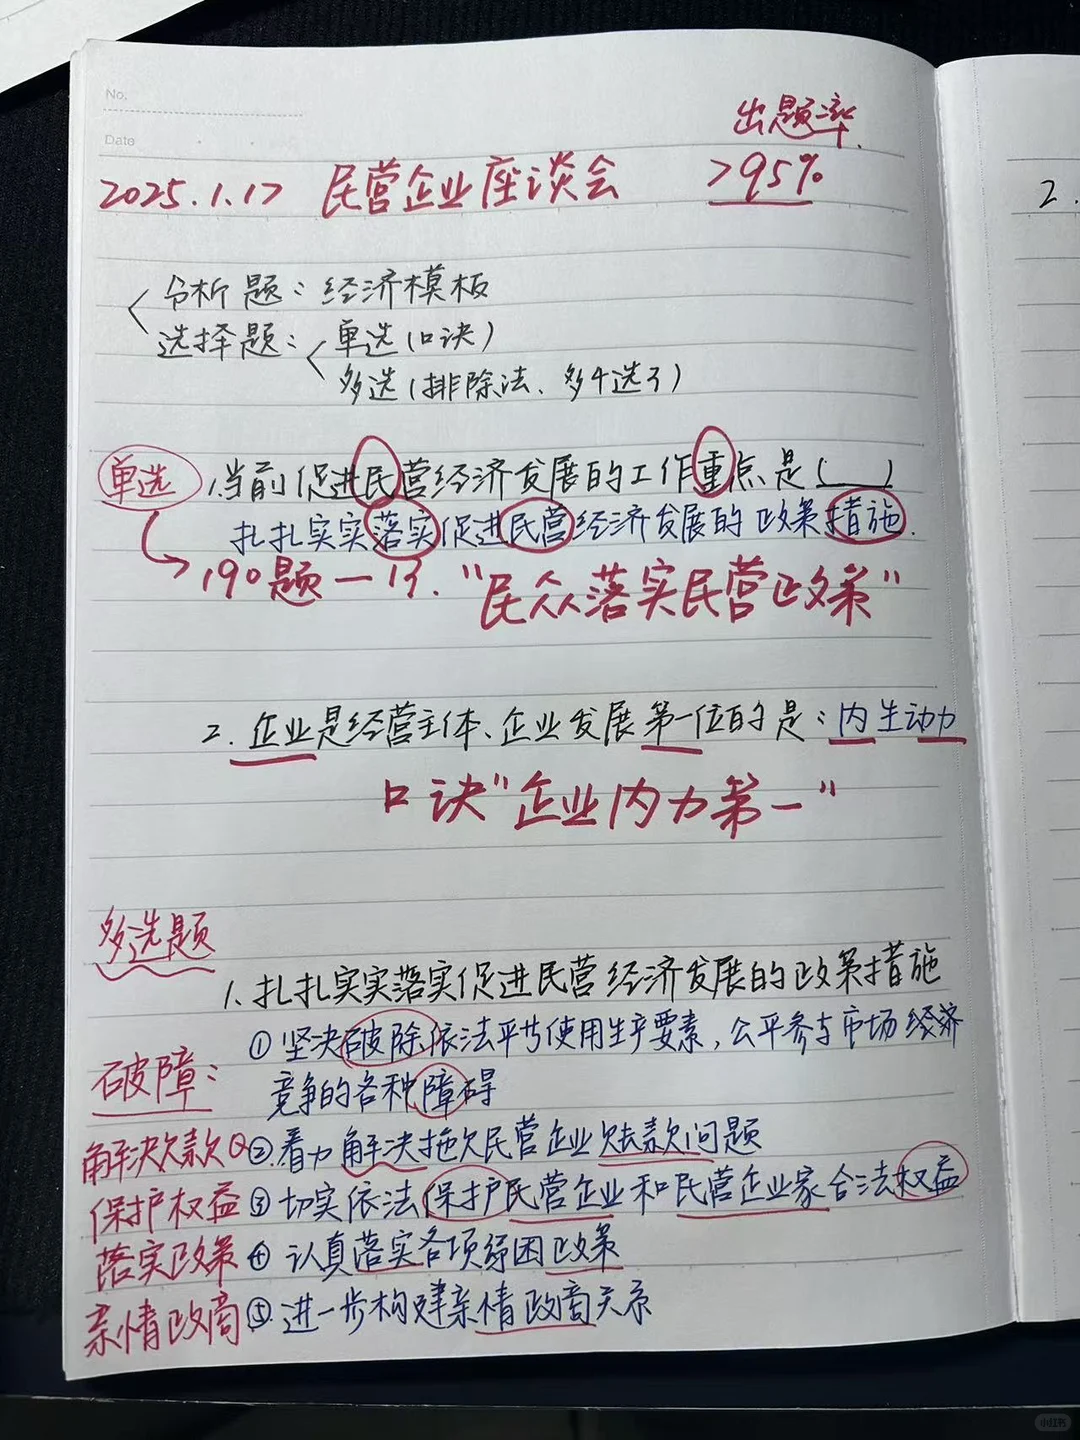 No.
Date
出题率
2025.1.17 民营企业座谈会 >95%
分析题：经济模板
选择题：单选（口诀）
多选（排除法、多4选3）
单选 1.当前促进民营经济发展的工作重点是（ ）
扎扎实实落实促进民营经济发展的政策措施.
190题一13."民众落实民营政策"
2.企业是经营主体、企业发展第一位的是：内生动力
口诀"企业内力第一"
多选题
1.扎扎实实落实促进民营经济发展的政策措施
①坚决破除依法平等使用生产要素，公平参与市场经济
破障：竞争的各种障碍
解决欠款 ②.着力解决拖欠民营企业账款问题
保护权益 ③切实依法保护民营企业和民营企业家合法权益
落实政策 ④认真落实各项纾困政策
亲情政商 ⑤.进一步构建亲情政商关系
2.
小红书